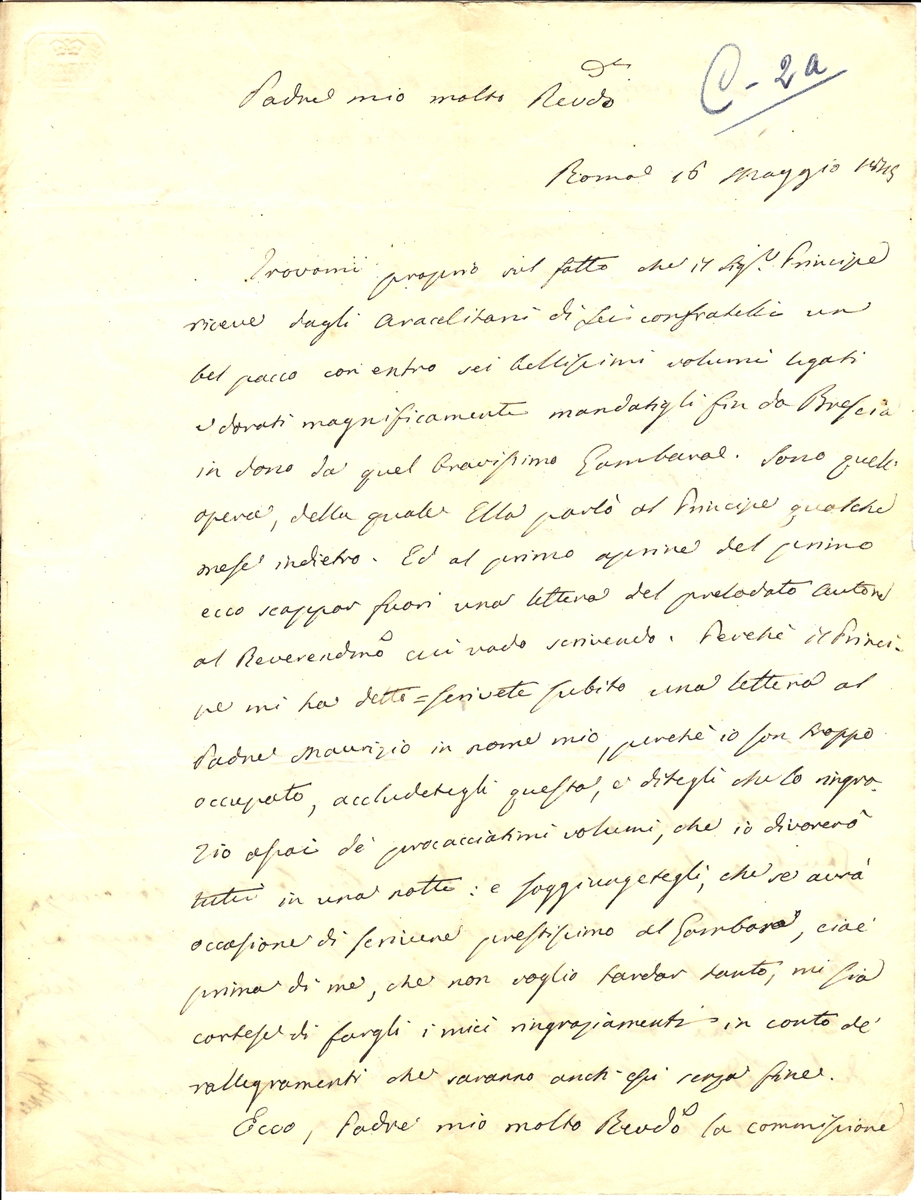 C - 2a
Padre mio molto Revdo
Roma 16 Maggio
Trovomi proprio sul fatto che il Sigr. Principe
riceve dagli Aracelitani di Lei confratelli un
bel pacco con entro sei bellissimi volumi legati
e dorati magnificamente mandatigli fin da Brescia
in dono da quel bravissimo Gambara. Sono quell'
opera, della quale Ella parlò al Principe qualche
mese indietro. Ed al primo aprire del primo
ecco scappar fuori una lettera del prelodato autore
al Reverendmo cui vado scrivendo. Perchè il Princi-
pe mi ha detto = scrivete subito una lettera al
Padre Maurizio in nome mio, perchè io son troppo
occupato, accludetegli questa, e ditegli che lo ringra-
zio assai de' procacciatimi volumi, che io divorerò
tutti in una notte: e soggiungetegli, che se avrà
occasione di scrivere prestissimo al Gambara, cioè
prima di me, che non voglio tardar tanto, mi sia
cortese di fargli i miei ringraziamenti in conto de'
rallegramenti che saranno anch'essi senza fine.
Ecco, Padre mio molto Revdo la commissione